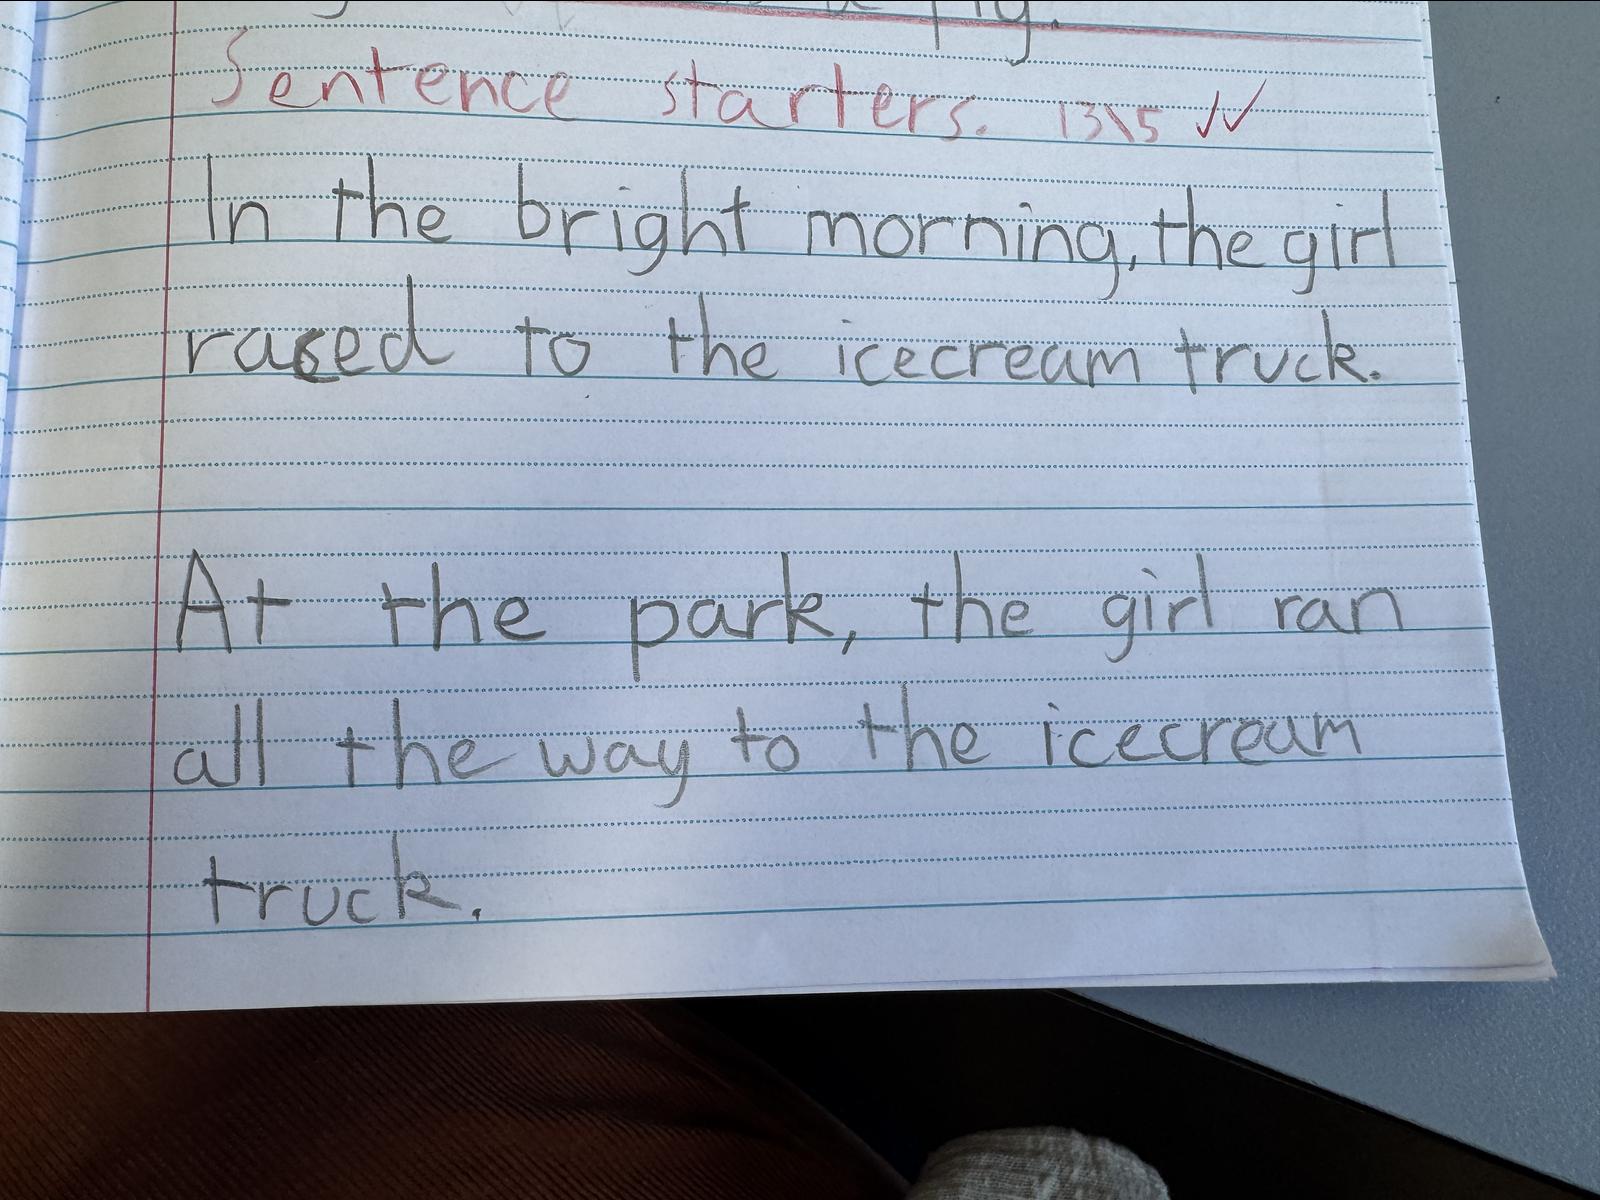 Sentence starters. 13\5
In the bright morning, the girl
raced to the icecream truck.
At the park, the girl ran
all the way to the icecream
truck.